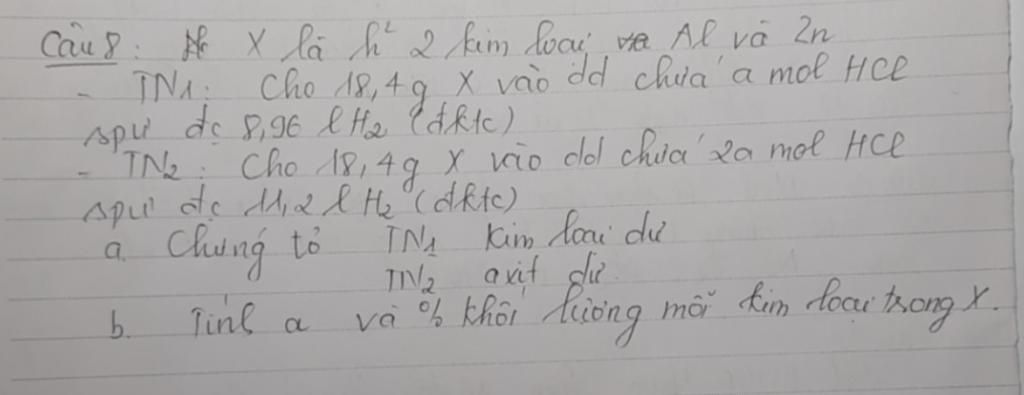 Câu 8: X là h² 2 kim loại Al và Zn
- TN1: Cho 18,4g X vào dd chứa a mol HCl
spư đc 8,96 l H2 (đktc)
- TN2: Cho 18,4g X vào dd chứa 2a mol HCl
spư đc 11,2 l H2 (đktc)
a. Chứng tỏ TN1 kim loại dư
TN2 axit dư.
b. Tính a và % khối lượng mỗi kim loại trong X.